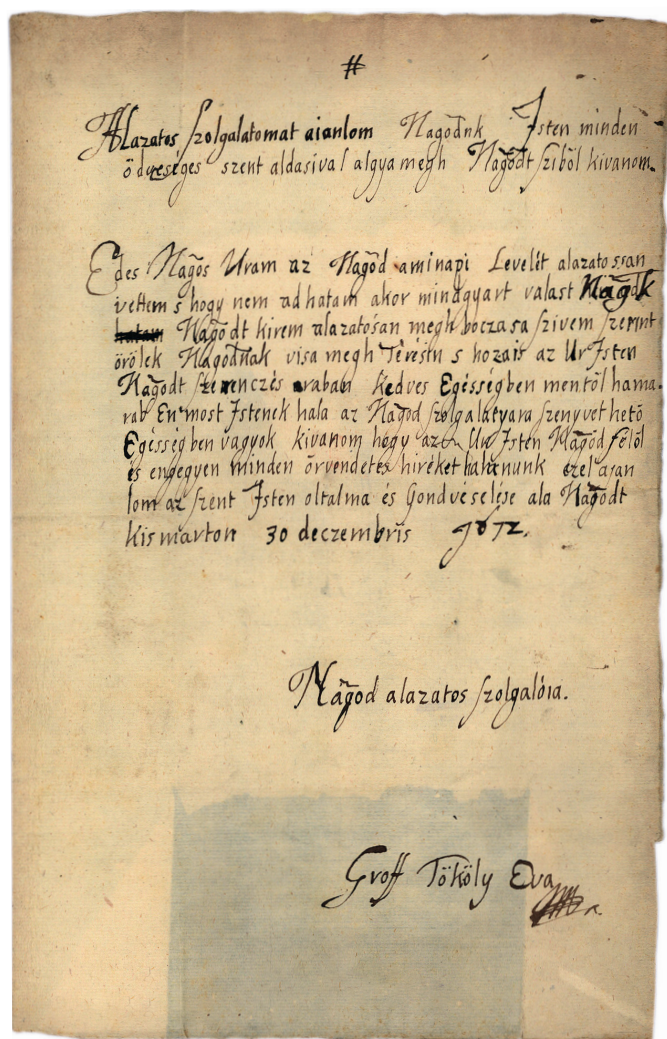 #
Alazatos szolgalatomat aianlom Nagodnk Isten minden
üdvességes szent aldasival algya megh Nagodt sziböl kivanom.
Edes Nagos Uram az Nagod aminapi Levelit alazatossan
vettem s hogy nem adhatam akor mindgyart valast Nagodk
hatam Nagodt kirem alazatosan megh boczasa szivem szerint
örölek Nagodnak visa megh Térésin s hozais az Ur Isten
Nagodt szerenczés oraban kedves Egésségben mentöl hama-
rab En most Istenek hala az Nagod szolgalatyara szenyvethetö
Egésségben vagyok kivanom hogy az Ur Isten Nagod felöl
és engegyen minden örvendetes hiréket halanunk ezel aian
lom az szent Isten oltalma és Gondviselése ala Nagodt
Kismarton 30 deczembris 1672.
Nagod alazatos szolgalóia.
Groff Tököly Eva